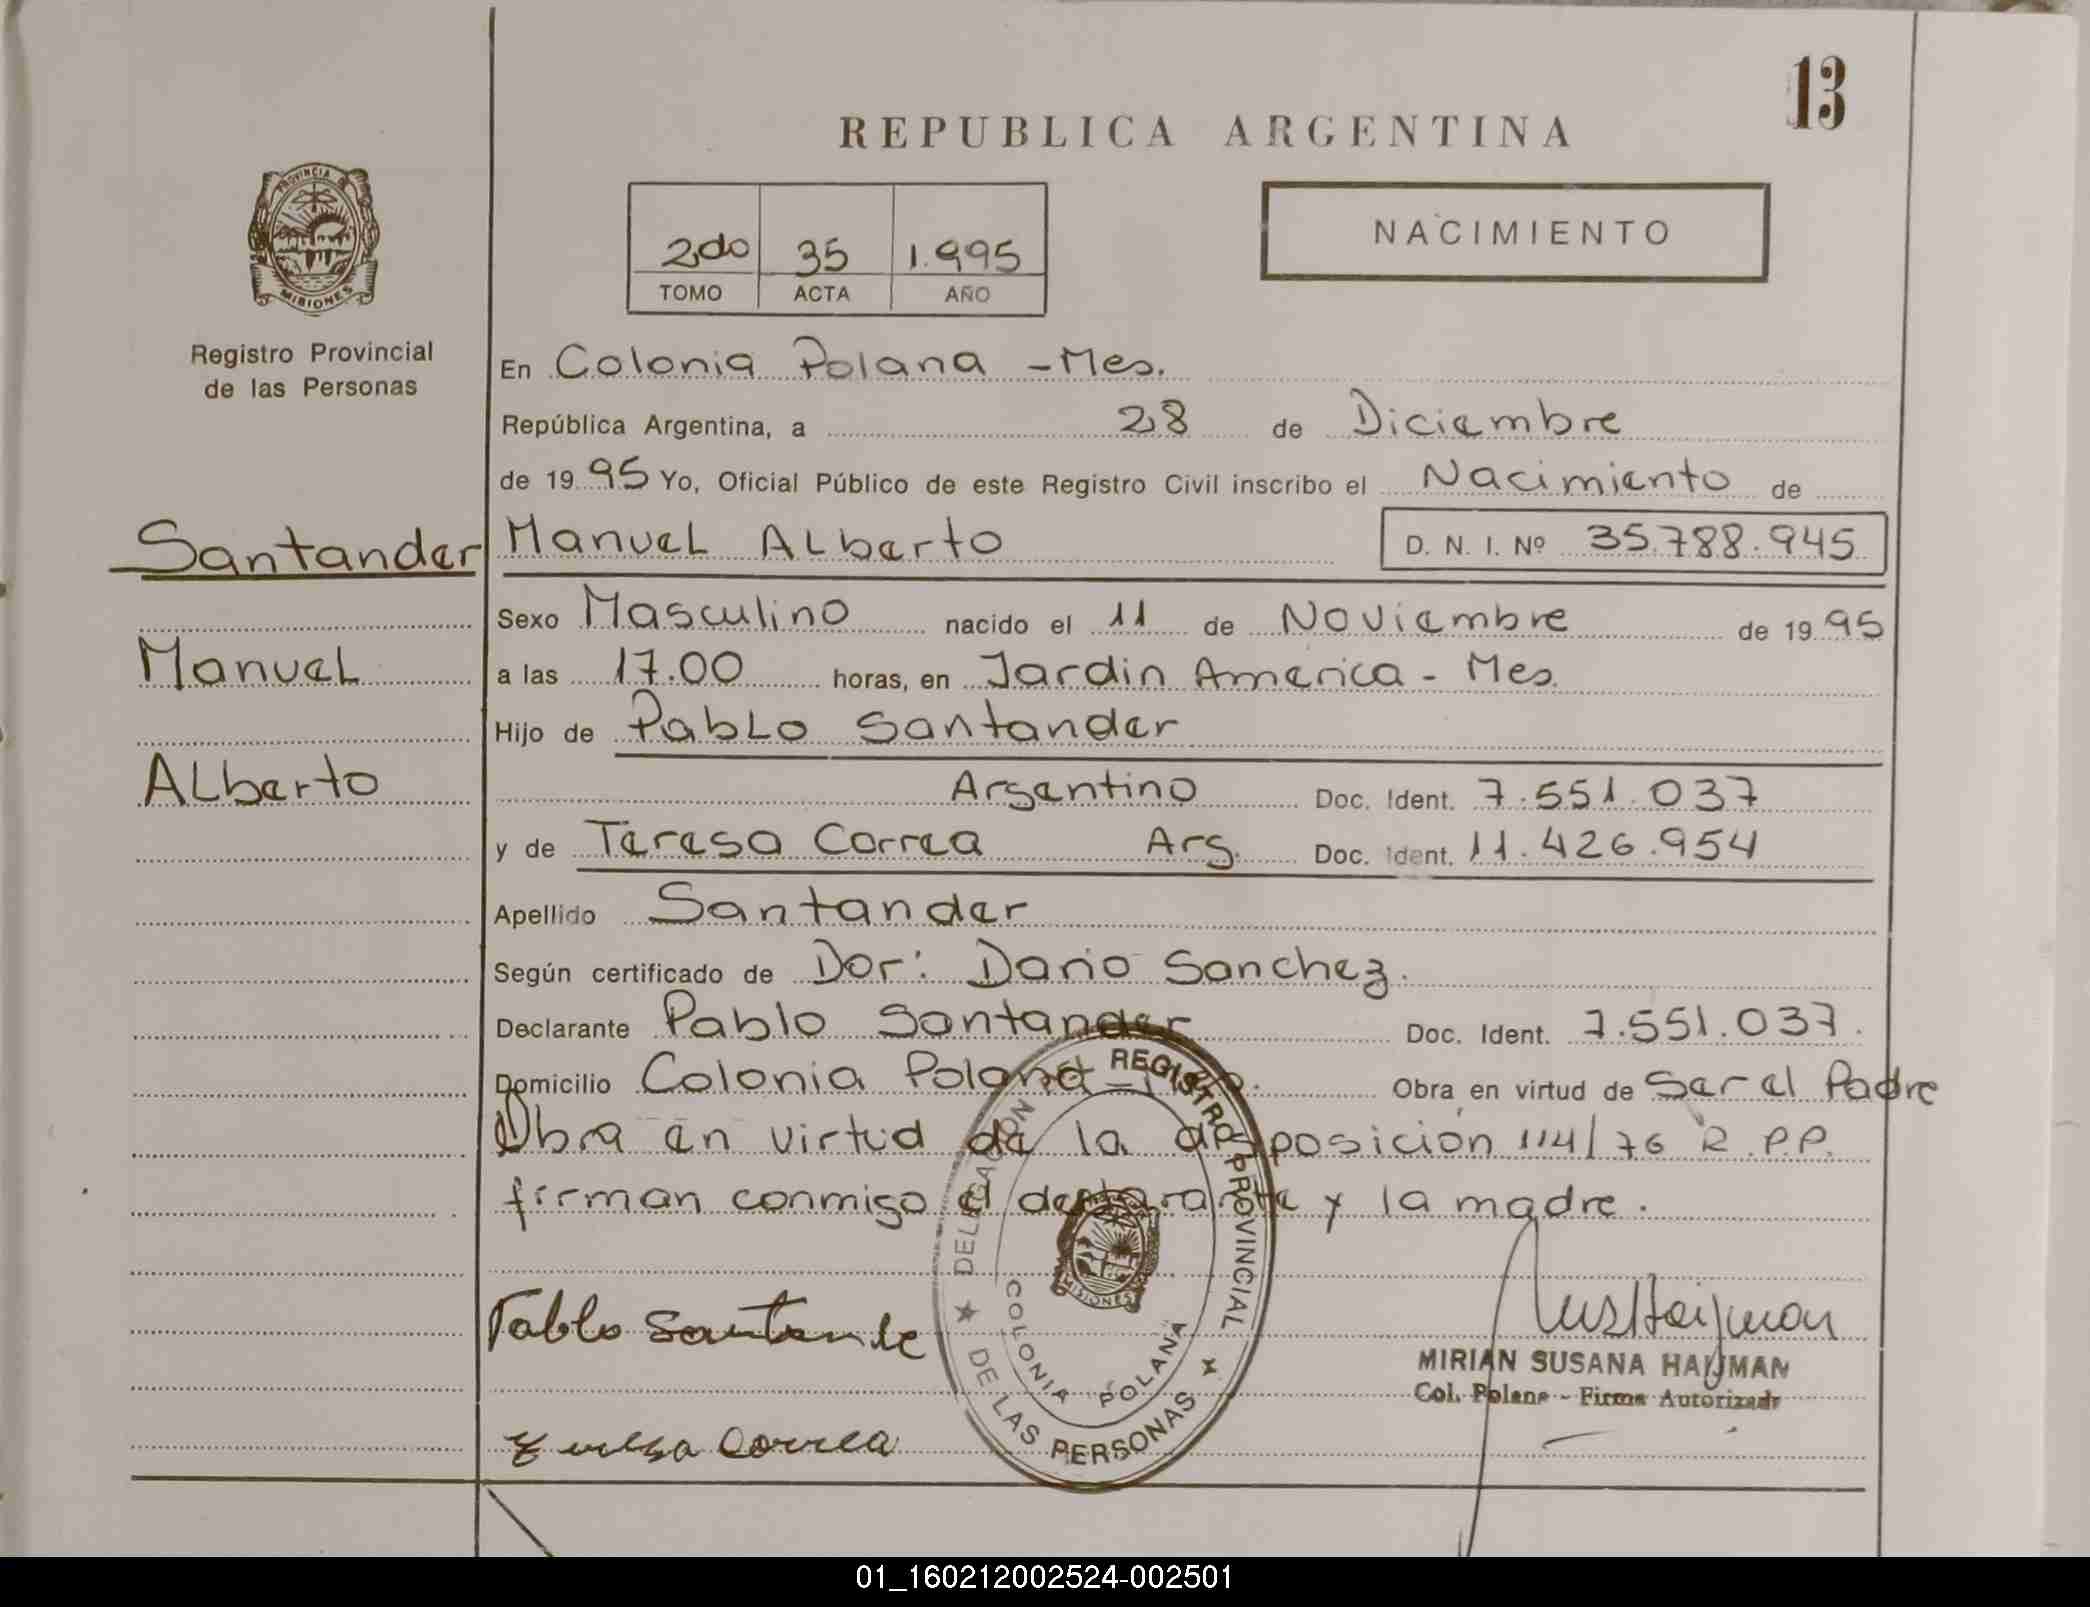 13
REPUBLICA ARGENTINA
PROVINCIA DE
MISIONES
2do 35 1.995
TOMO ACTA AÑO
NACIMIENTO
Registro Provincial
de las Personas
En Colonia Polana - Mes.
República Argentina, a 28 de Diciembre
de 19 95 Yo, Oficial Público de este Registro Civil inscribo el Nacimiento de
Santander Manuel ALberto D. N. I. Nº 35.788.945
Sexo Masculino nacido el 11 de Noviembre de 19 95
Manuel
a las 17.00 horas, en Jardin America - Mes.
Hijo de PabLo Santander
ALberto
Argentino Doc. Ident. 7.551.037
y de Teresa Correa Arg. Doc. Ident. 11.426.954
Apellido Santander
Según certificado de Dor: Dario Sanchez.
Declarante Pablo Santander Doc. Ident. 7.551.037.
Domicilio Colonia Polana Obra en virtud de Ser el Padre
Obra en virtud de la disposición 114/76 R.P.P.
firman conmigo el declarante y la madre.
DELEGACION REGISTRO PROVINCIAL
DE LAS PERSONAS
COLONIA POLANA
MISIONES
Pablo Santande
Correa
MIRIAN SUSANA HAIJMAN
Col. Polana - Firma Autorizada
01_160212002524-002501